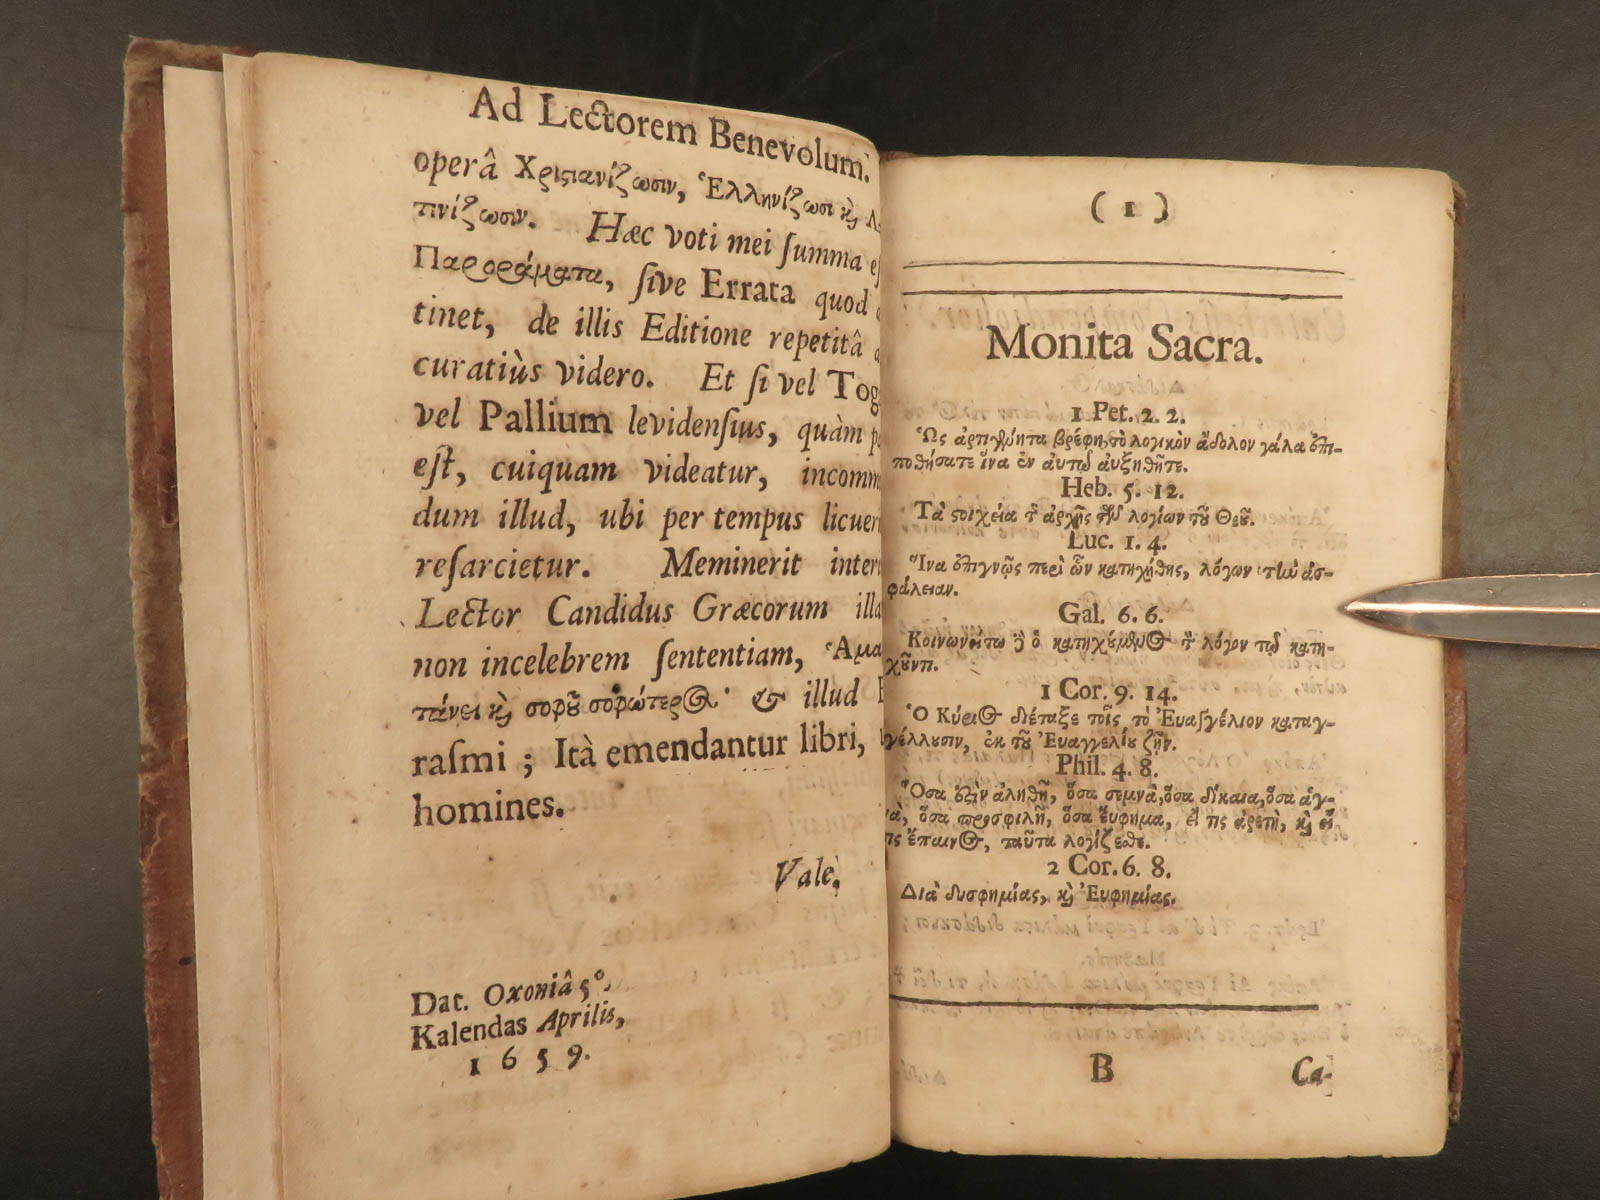 Ad Lectorem Benevolum.
operâ Χριςιανίζωσιν, Ἑλληνίζωσι ϗ
τινίζωσιν. Hæc voti mei ſumma
Παροράματα, ſive Errata quod
tinet, de illis Editione repetitâ
curatiùs videro. Et ſi vel Tog
vel Pallium levidenſius, quàm p
eſt, cuiquam videatur, incomm
dum illud, ubi per tempus licueri
reſarcietur. Meminerit inter
Lector Candidus Græcorum illa
non incelebrem ſententiam, Ἁμα
τάνει ϗ σοφοῦ σοφώτερος· & illud E
raſmi ; Ità emendantur libri,
homines.
Vale.
Dat. Oxoniâ 5º.
Kalendas Aprilis,
1659.
( 1 )
Monita Sacra.
1 Pet. 2. 2.
Ὡς ἀρτιγέννητα βρέφη, τὸ λογικὸν ἄδολον γάλα ἐπι-
ποθήσατε ἵνα ἐν αὐτῷ αὐξηθῆτε.
Heb. 5. 12.
Τὰ ςοιχεῖα τῆς ἀρχῆς τῶν λογίων τοῦ Θεοῦ.
Luc. 1. 4.
Ἵνα ἐπιγνῷς περὶ ὧν κατηχήθης, λόγων τὴν ἀσ-
φάλειαν.
Gal. 6. 6.
Κοινωνείτω δὲ ὁ κατηχούμενος τὸν λόγον τῷ κατη-
χοῦντι.
1 Cor. 9. 14.
Ὁ Κύριος διέταξε τοῖς τὸ Ἐυαγγέλιον καταγ-
γέλλουσιν, ἐκ τοῦ Ἐυαγγελίου ζῆν.
Phil. 4. 8.
Ὅσα ἐςὶν ἀληθῆ, ὅσα σεμνὰ, ὅσα δίκαια, ὅσα ἁγ-
νὰ, ὅσα προσφιλῆ, ὅσα ἔυφημα, εἴ τις ἀρετὴ, ϗ εἴ
τις ἔπαινος, ταῦτα λογίζεσθε.
2 Cor. 6. 8.
Διὰ δυσφημίας, ϗ Ἐυφημίας.
B
Ca-